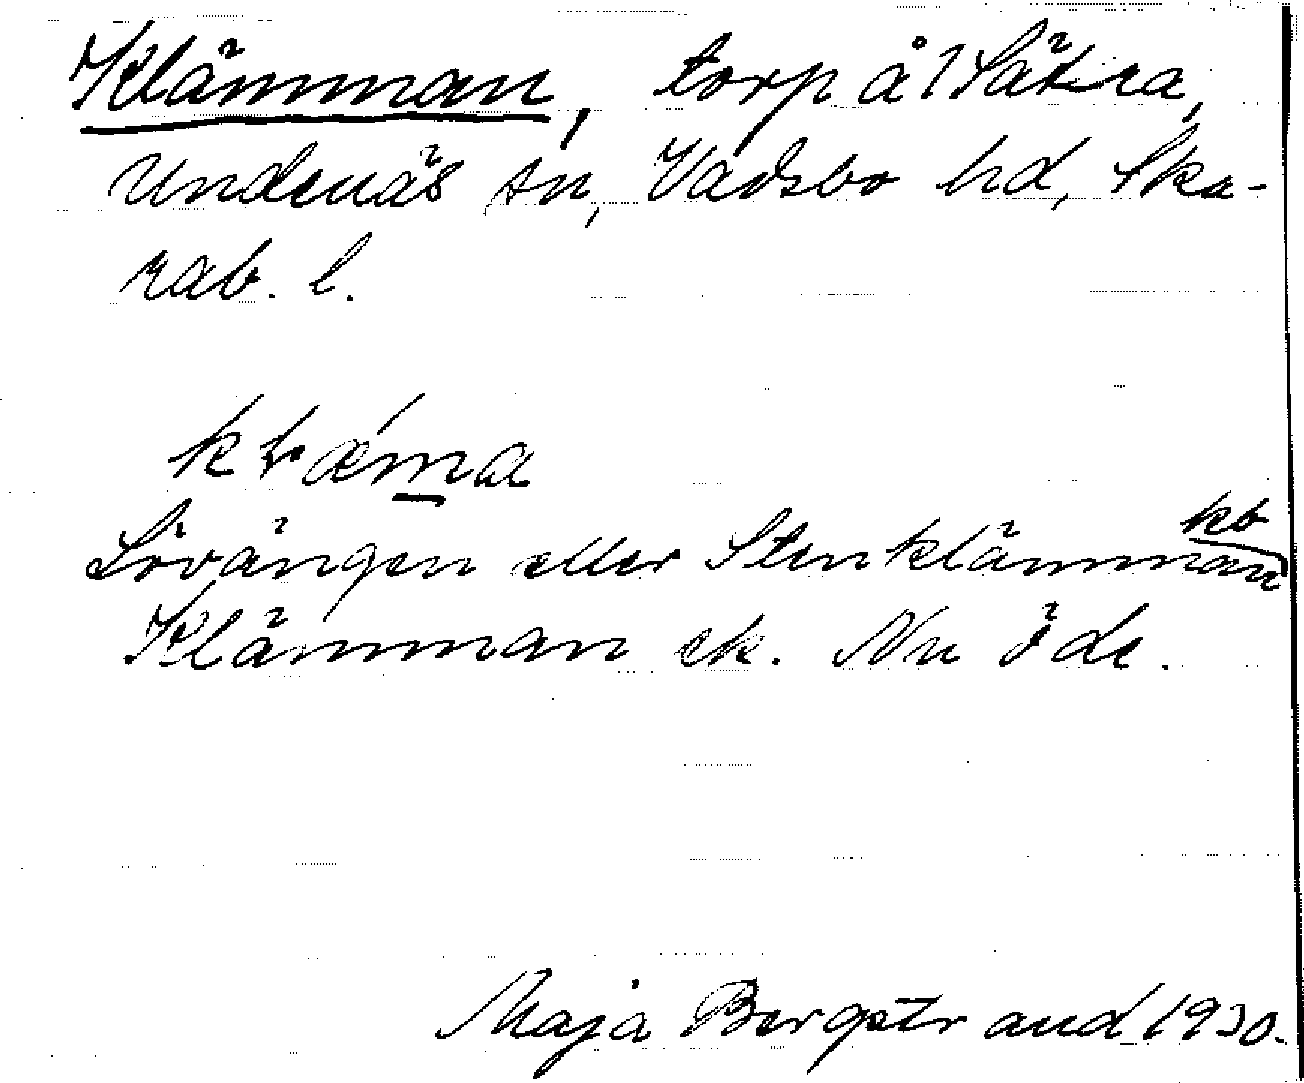 Klämman, torp å 1 Sätra,
Undenäs sn, Vadsbo hd, Ska-
rab. l.
klæ´ma
kb
Lövängen eller Stenklämman
Klämman ek. Nu öde.
Maja Bergstrand 1930.